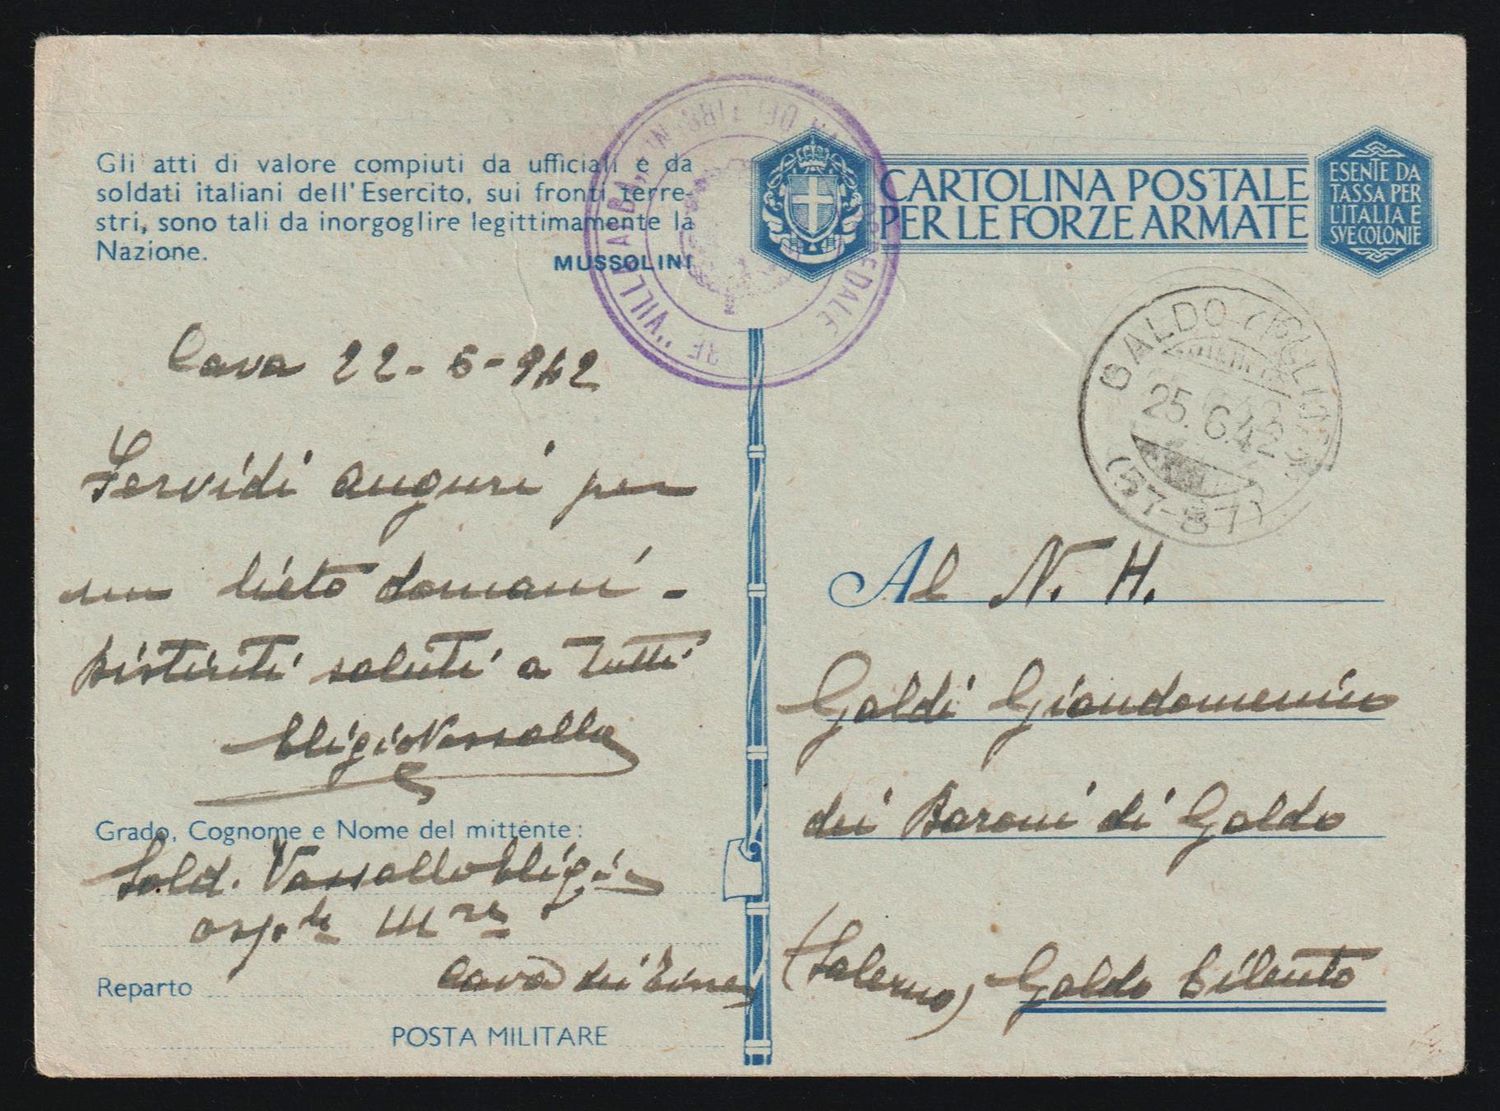 Gli atti di valore compiuti da ufficiali e da
soldati italiani dell'Esercito, sui fronti terre-
stri, sono tali da inorgoglire legittimamente la
Nazione.
MUSSOLINI
CARTOLINA POSTALE
PER LE FORZE ARMATE
ESENTE DA
TASSA PER
L'ITALIA E
SVE COLONIE
OSPEDALE "VILL ALBA"
GALDO
25.6.42
(57-87)
Cava 22-6-942
Fervidi auguri per
un lieto domani -
Distinti saluti a tutti
Eligio Vassallo
Grado, Cognome e Nome del mittente:
Sold. Vassallo Eligio
osp.le Mre
Cava dei Tirreni
Reparto
POSTA MILITARE
Al N. H.
Galdi Giandomenico
dei Baroni di Galdo
(Salerno) Galdo Cilento